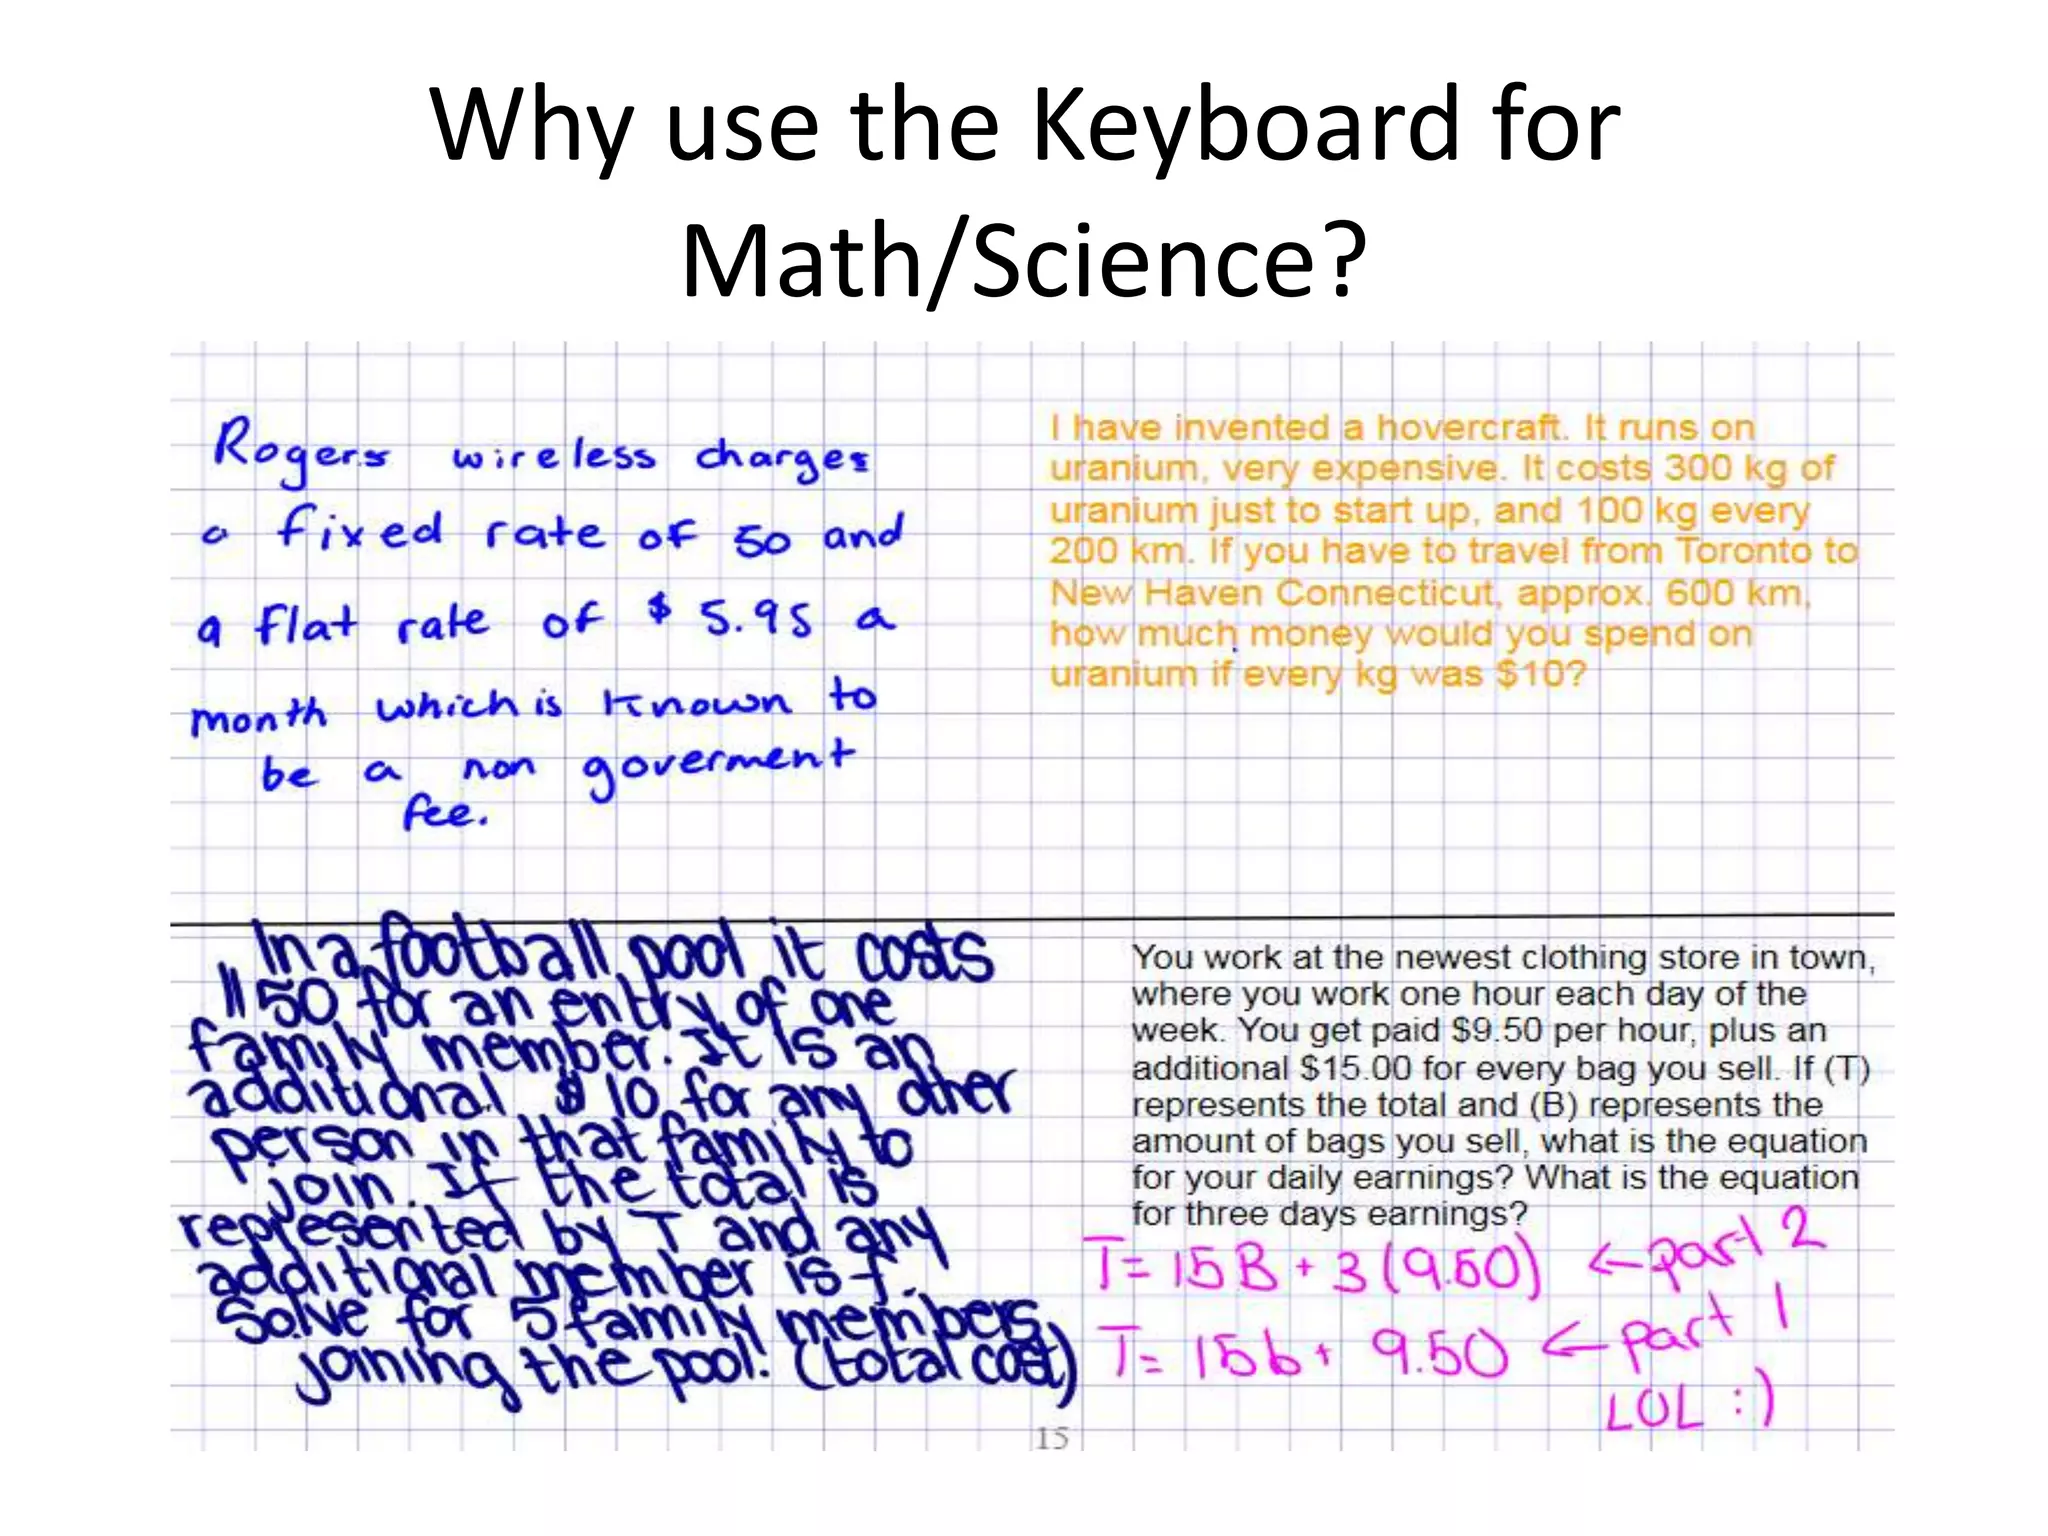 Why use the Keyboard for
Math/Science?
Rogers wireless charges
a fixed rate of 50 and
a flat rate of $ 5.95 a
month which is known to
be a non goverment
fee.
I have invented a hovercraft. It runs on
uranium, very expensive. It costs 300 kg of
uranium just to start up, and 100 kg every
200 km. If you have to travel from Toronto to
New Haven Connecticut, approx. 600 km,
how much money would you spend on
uranium if every kg was $10?
In a football pool it costs
$50 for an entry of one
family member. It is an
additional $10 for any other
person in that family to
join. If the total is
represented by T and any
additional member is f.
Solve for 5 family members
joining the pool. (total cost)
You work at the newest clothing store in town,
where you work one hour each day of the
week. You get paid $9.50 per hour, plus an
additional $15.00 for every bag you sell. If (T)
represents the total and (B) represents the
amount of bags you sell, what is the equation
for your daily earnings? What is the equation
for three days earnings?
T=15B+3(9.50) ←part 2
T=15b+ 9.50 ←part 1
LOL :)
15